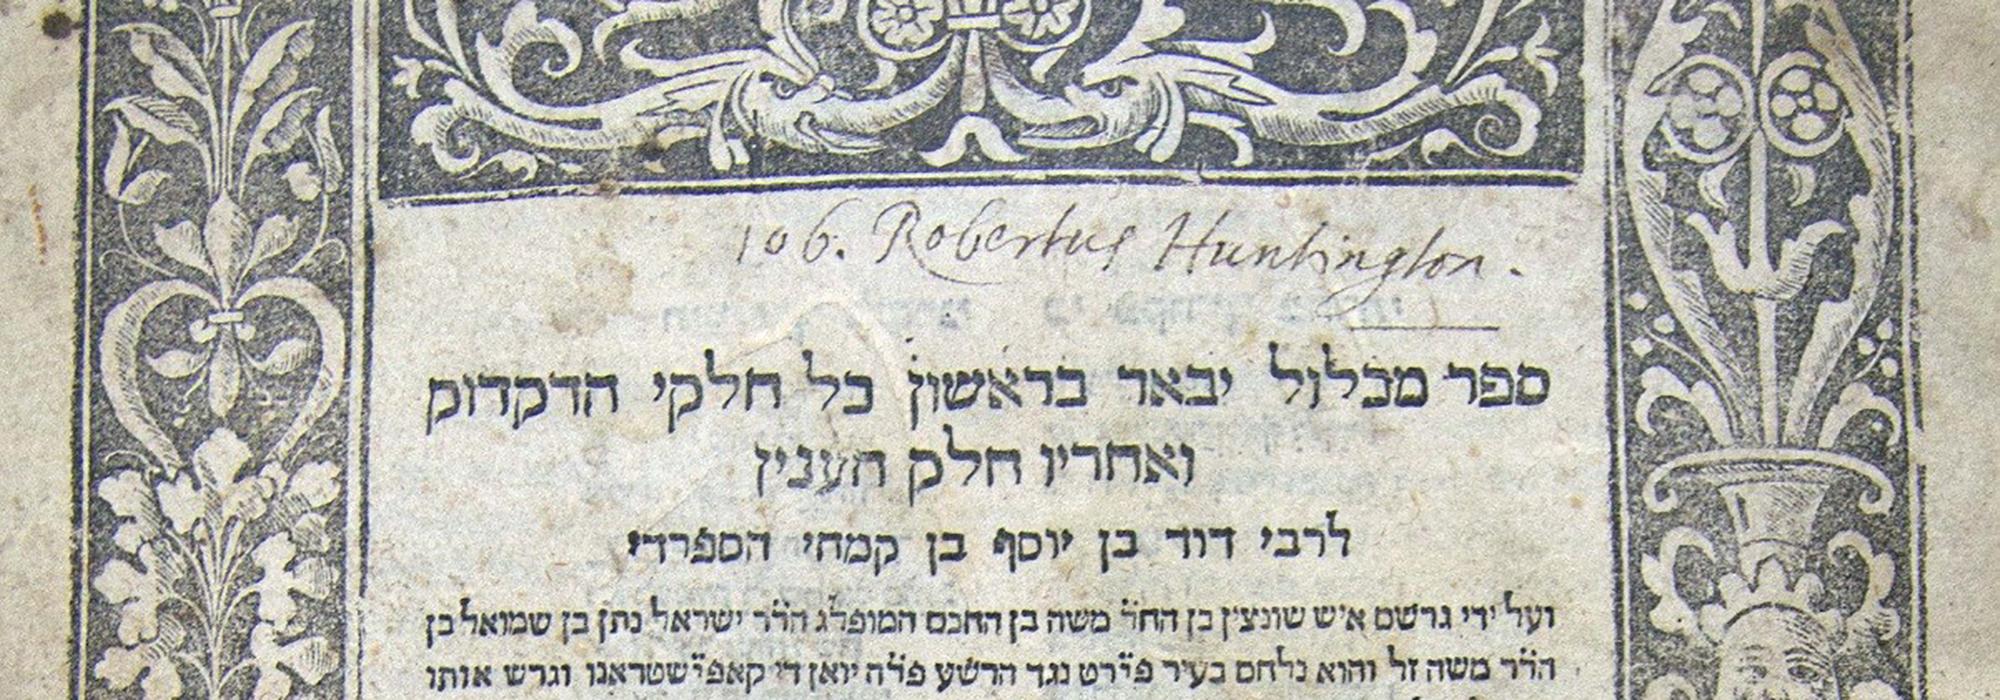 106. Robertus Huntington.
ספר מכלול יבאר בראשון כל חלקי הדקדוק
ואחריו חלק הענין
לרבי דוד בן יוסף בן קמחי הספרדי
ועל ידי גרשם איש שונצין בן החר משה בן החכם המופלג הדר ישראל נתן בן שמואל בן
הדר משה זל והוא נלחם בעיר פירט נגד הרשע פרה יואן די קאפישטראנו וגרש אותו